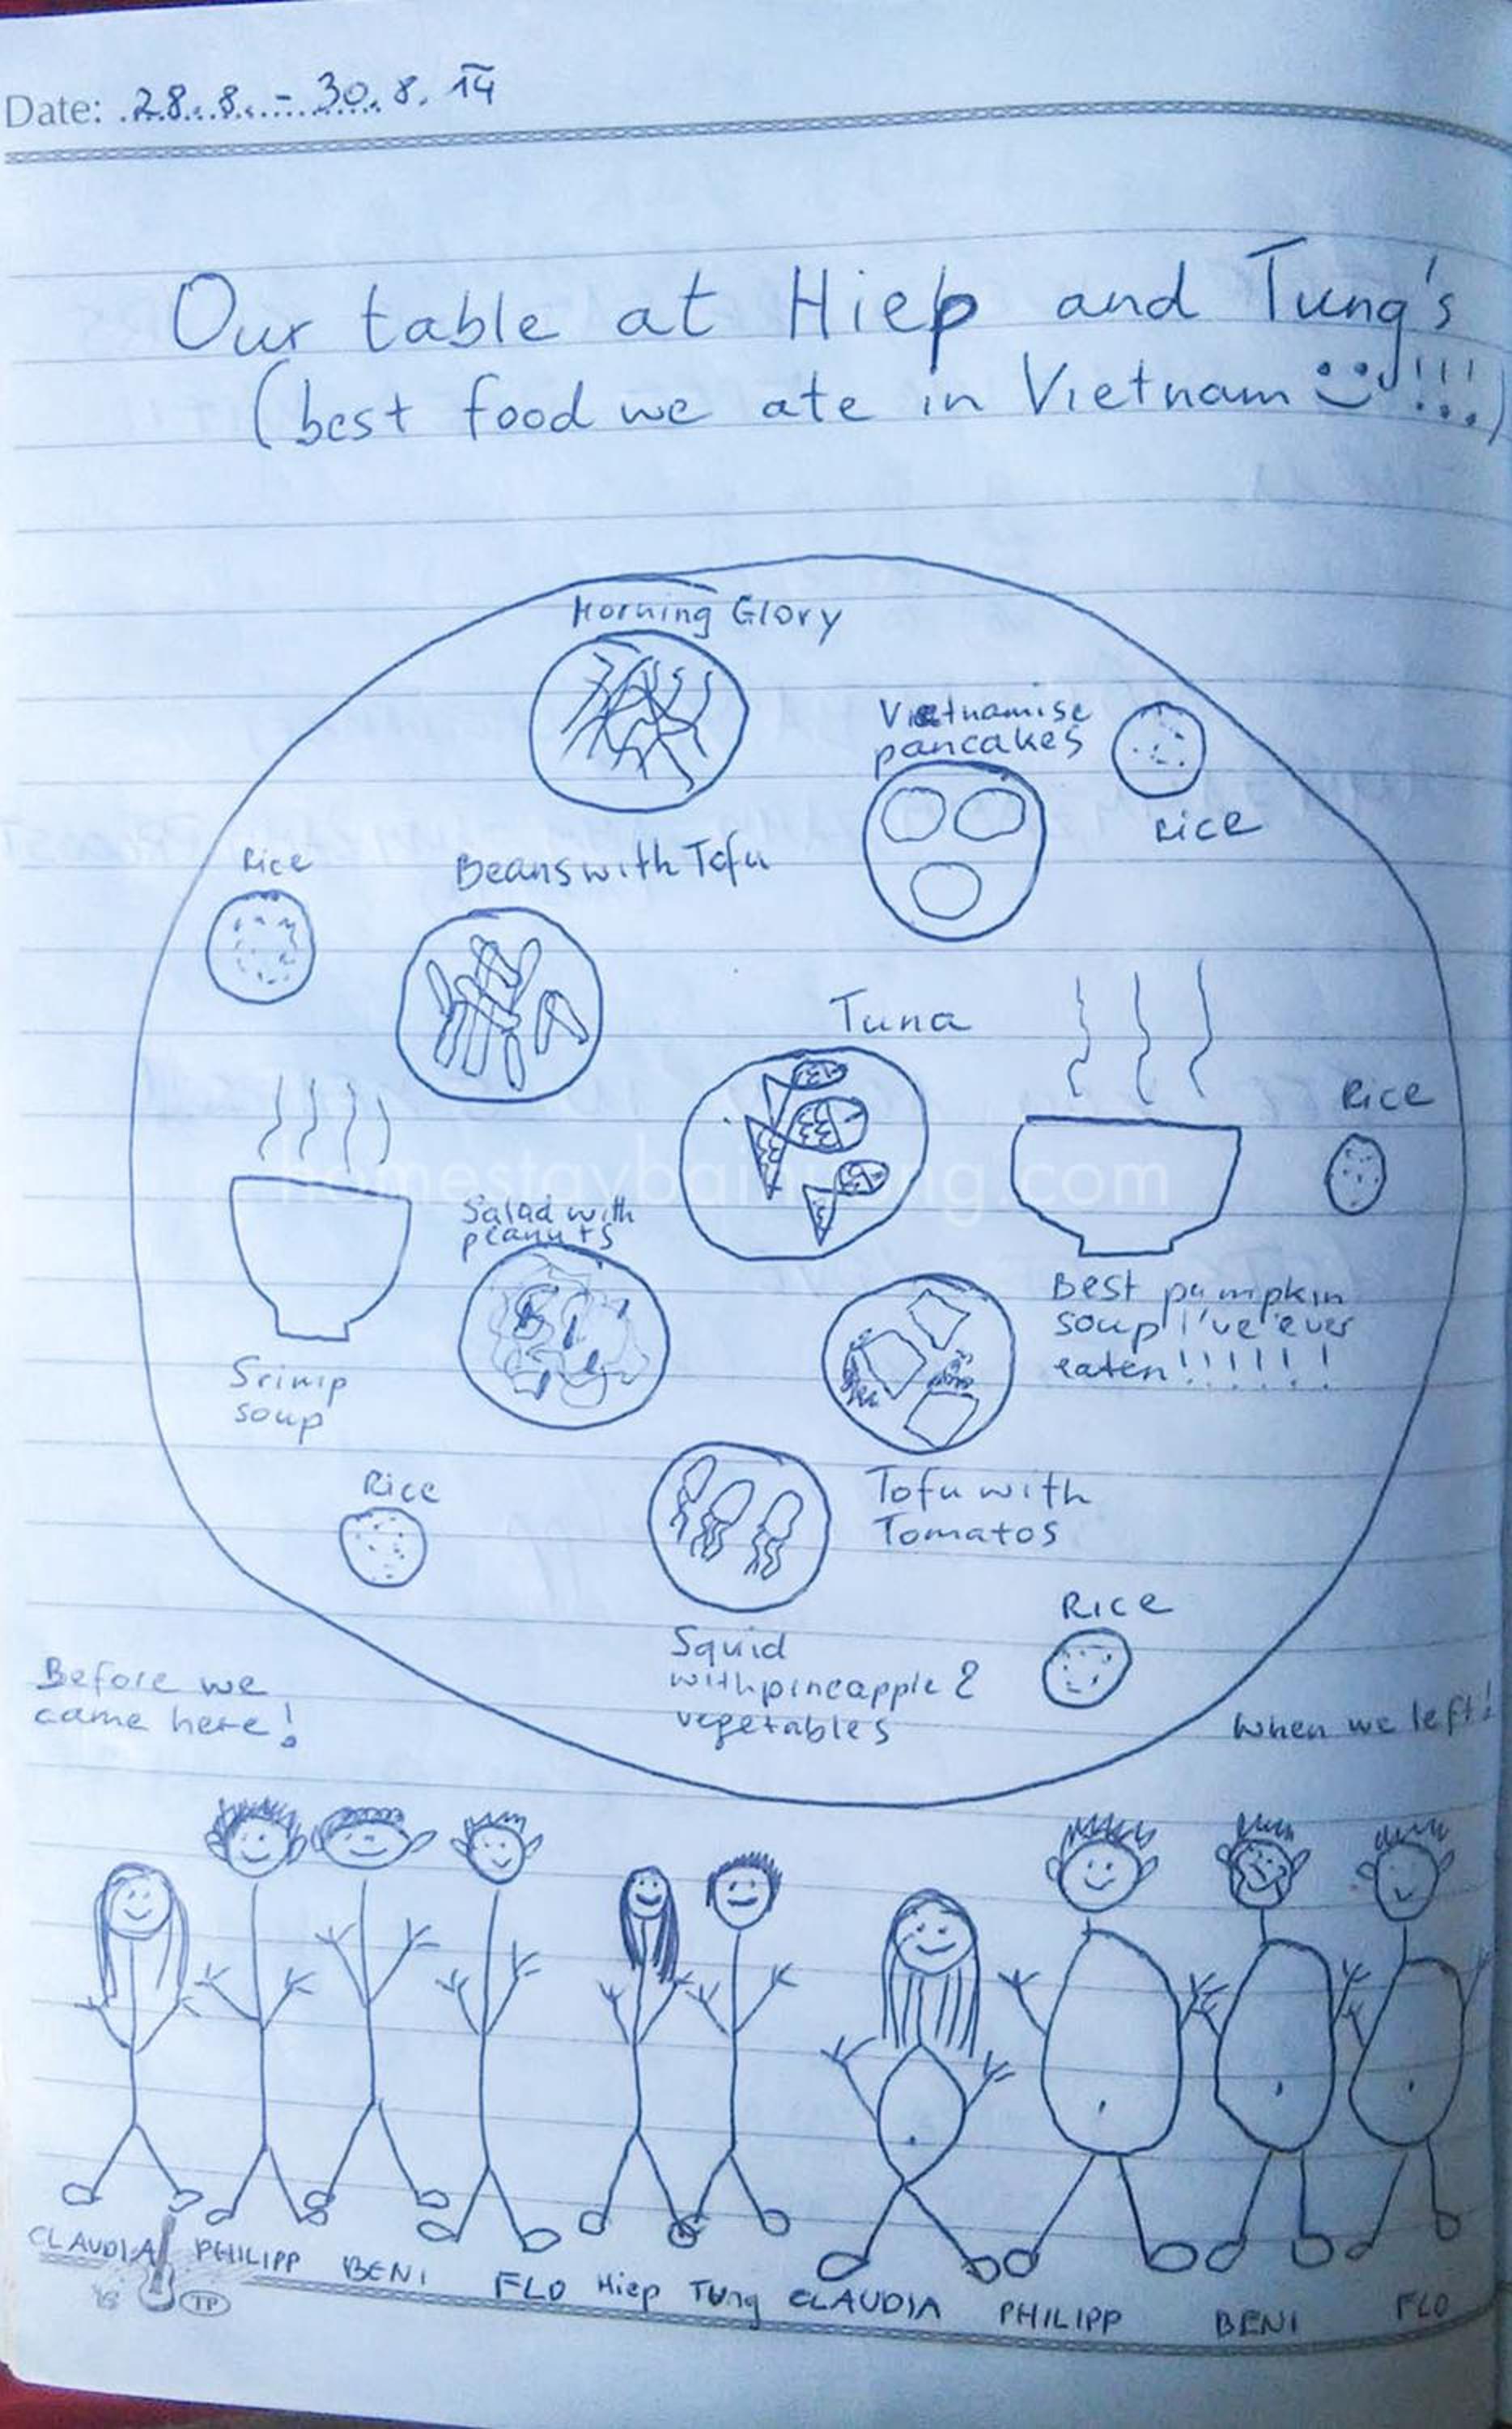 Date: 28.8. - 30.8.14
Our table at Hiep and Tung's
(best food we ate in Vietnam !!!)
Morning Glory
Vietnamise
pancakes
Rice
Rice
Beans with Tofu
Tuna
Rice
homestaybaihuong.com
Salad with
peanuts
Best pumpkin
soup I've ever
eaten!!!!!!
Srimp
soup
Rice
Tofu with
Tomatos
Rice
Squid
with pineapple &
vegetables
Before we
came here!
When we left!
CLAUDIA PHILIPP BENI FLO Hiep Tung CLAUDIA PHILIPP BENI FLO
TP